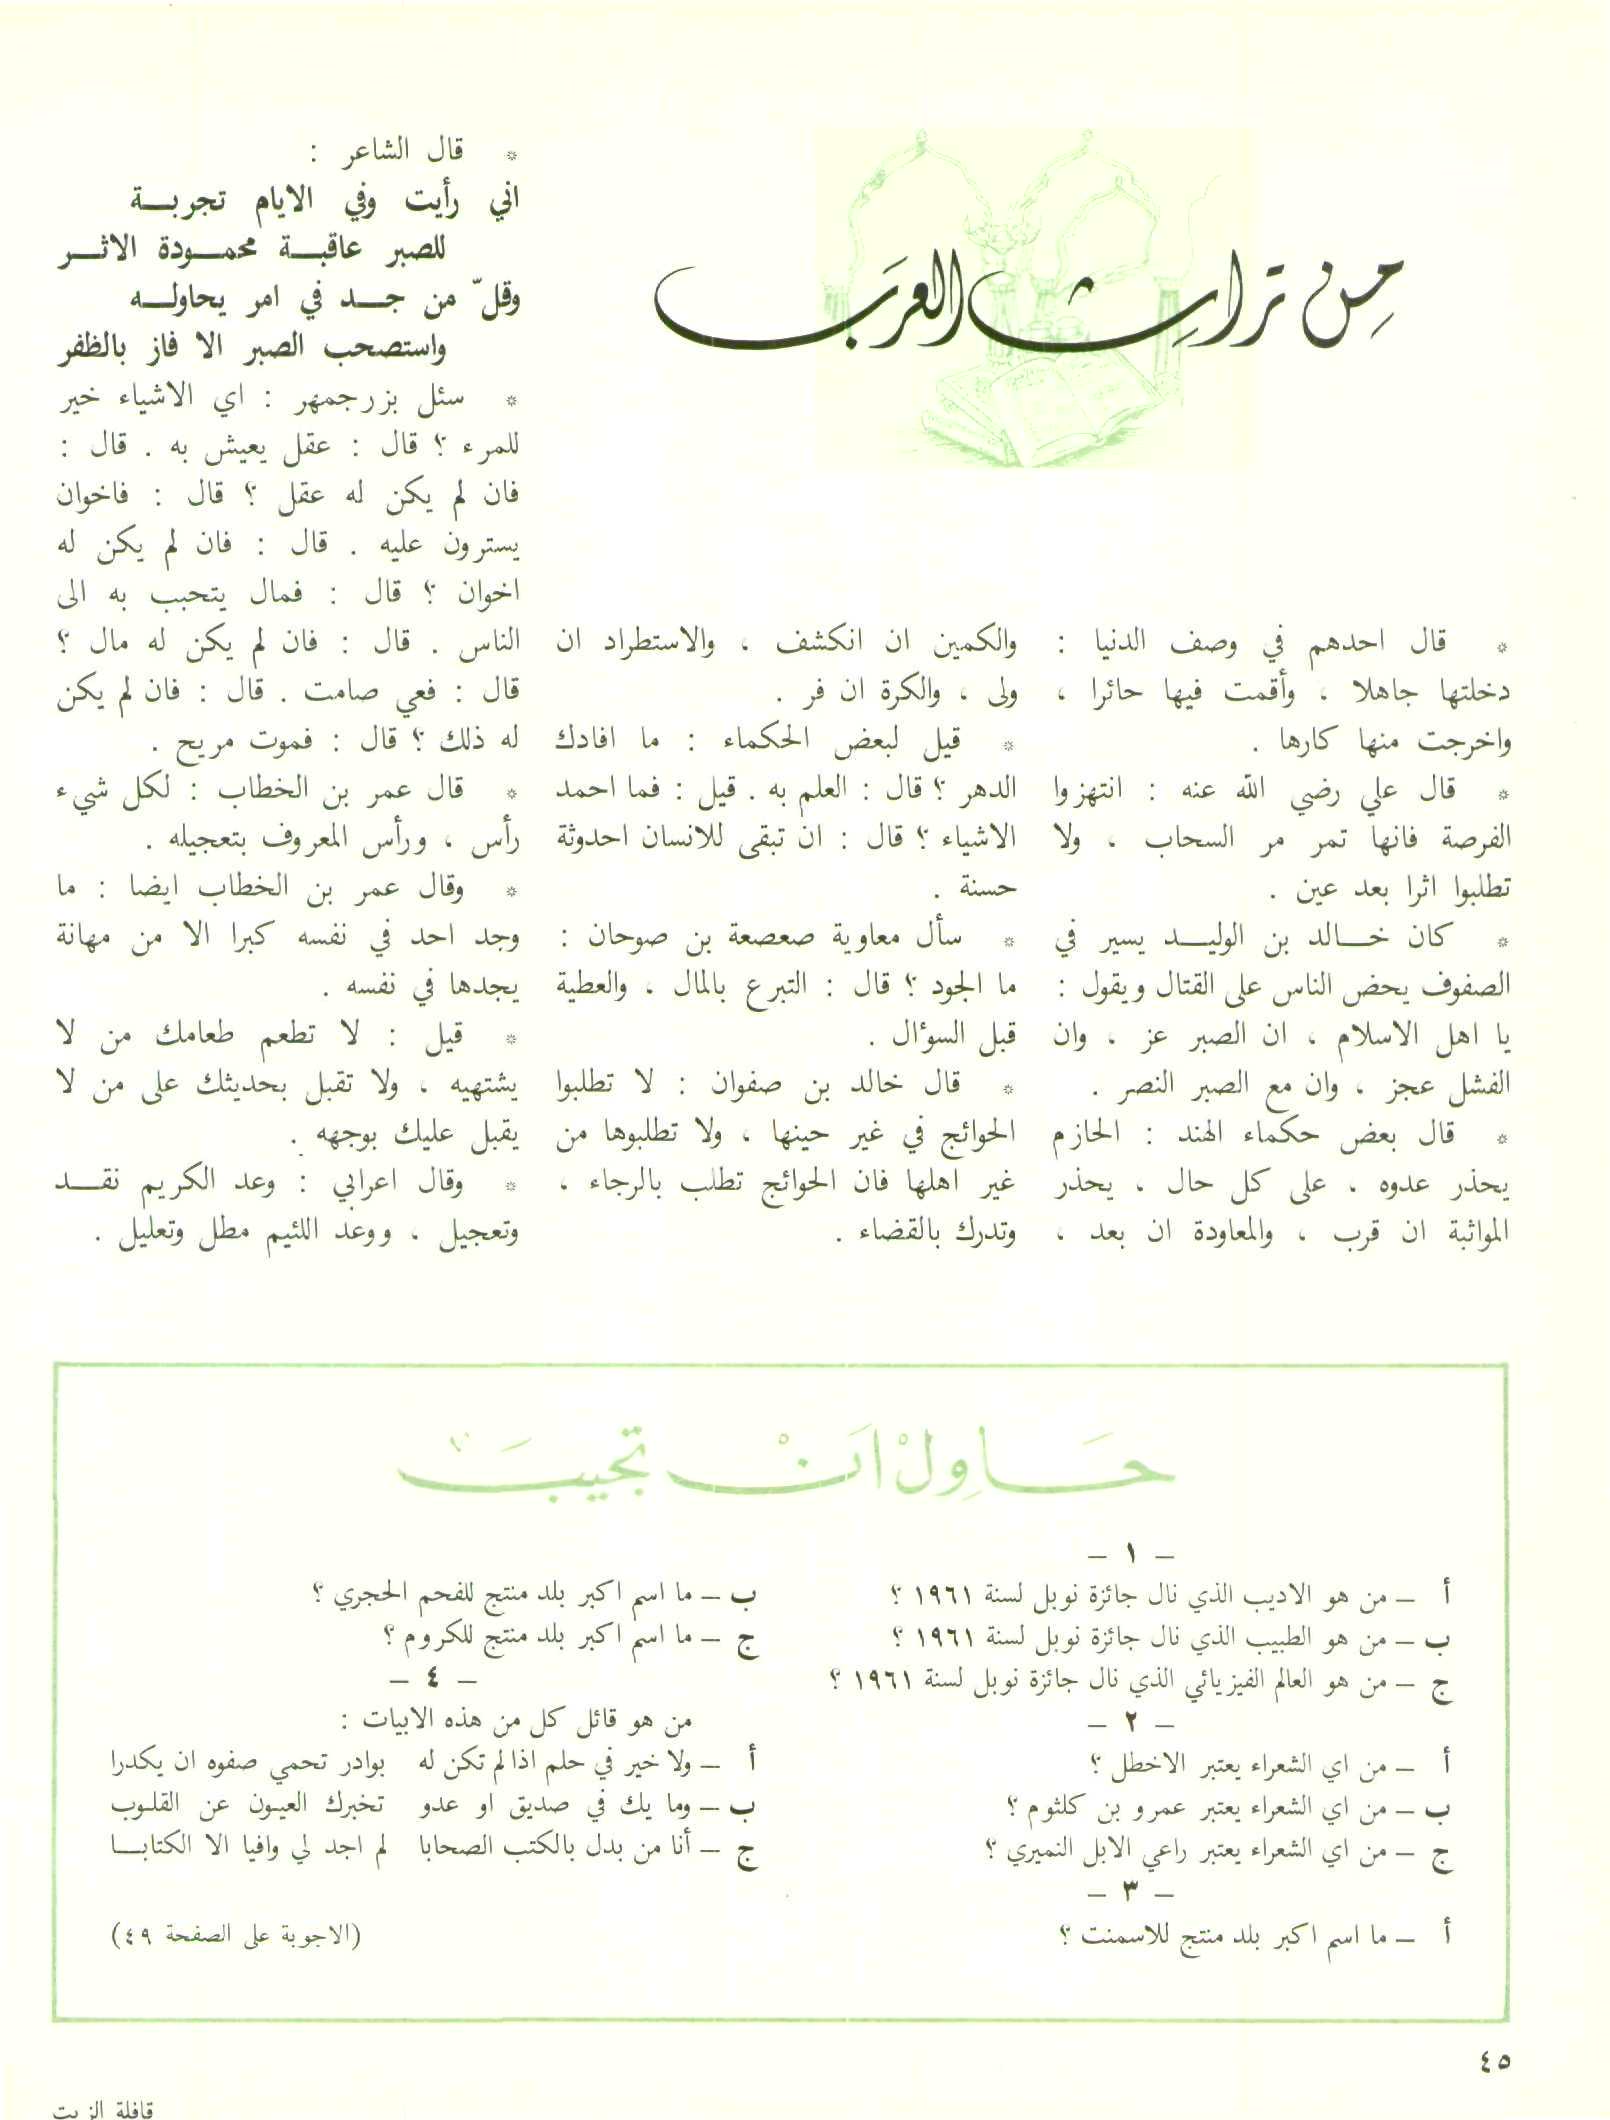 من تراث العرب
* قال احدهم في وصف الدنيا :
دخلتها جاهلا ، وأقمت فيها حائرا ،
واخرجت منها كارها .
* قال علي رضي الله عنه : انتهزوا
الفرصة فانها تمر مر السحاب ، ولا
تطلبوا اثرا بعد عين .
* كان خالد بن الوليد يسير في
الصفوف يحض الناس على القتال ويقول :
يا اهل الاسلام ، ان الصبر عز ، وان
الفشل عجز ، وان مع الصبر النصر .
* قال بعض حكماء الهند : الحازم
يحذر عدوه ، على كل حال ، يحذر
المواثبة ان قرب ، والمعاودة ان بعد ،
والكمين ان انكشف ، والاستطراد ان
ولى ، والكرة ان فر .
* قيل لبعض الحكماء : ما افادك
الدهر ؟ قال : العلم به . قيل : فما احمد
الاشياء ؟ قال : ان تبقى للانسان احدوثة
حسنة .
* سأل معاوية صعصعة بن صوحان :
ما الجود ؟ قال : التبرع بالمال ، والعطية
قبل السؤال .
* قال خالد بن صفوان : لا تطلبوا
الحوائج في غير حينها ، ولا تطلبوها من
غير اهلها فان الحوائج تطلب بالرجاء ،
وتدرك بالقضاء .
* قال الشاعر :
اني رأيت وفي الايام تجربة
للصبر عاقبة محمودة الاثر
وقلّ من جد في امر يحاوله
واستصحب الصبر الا فاز بالظفر
* سئل بزرجمهر : اي الاشياء خير
للمرء ؟ قال : عقل يعيش به . قال :
فان لم يكن له عقل ؟ قال : فاخوان
يسترون عليه . قال : فان لم يكن له
اخوان ؟ قال : فمال يتحبب به الى
الناس . قال : فان لم يكن له مال ؟
قال : فعي صامت . قال : فان لم يكن
له ذلك ؟ قال : فموت مريح .
* قال عمر بن الخطاب : لكل شيء
رأس ، ورأس المعروف بتعجيله .
* وقال عمر بن الخطاب ايضا : ما
وجد احد في نفسه كبرا الا من مهانة
يجدها في نفسه .
* قيل : لا تطعم طعامك من لا
يشتهيه ، ولا تقبل بحديثك على من لا
يقبل عليك بوجهه .
* وقال اعرابي : وعد الكريم نقد
وتعجيل ، ووعد اللئيم مطل وتعليل .
حَاوِلْ اَنْ تجيبَ
– ١ –
أ – من هو الاديب الذي نال جائزة نوبل لسنة ١٩٦١ ؟
ب – من هو الطبيب الذي نال جائزة نوبل لسنة ١٩٦١ ؟
ج – من هو العالم الفيزيائي الذي نال جائزة نوبل لسنة ١٩٦١ ؟
– ٢ –
أ – من اي الشعراء يعتبر الاخطل ؟
ب – من اي الشعراء يعتبر عمرو بن كلثوم ؟
ج – من اي الشعراء يعتبر راعي الابل النميري ؟
– ٣ –
أ – ما اسم اكبر بلد منتج للاسمنت ؟
ب – ما اسم اكبر بلد منتج للفحم الحجري ؟
ج – ما اسم اكبر بلد منتج للكروم ؟
– ٤ –
من هو قائل كل من هذه الابيات :
أ – ولا خير في حلم اذا لم تكن له بوادر تحمي صفوه ان يكدرا
ب – وما يك في صديق او عدو تخبرك العيون عن القلوب
ج – أنا من بدل بالكتب الصحابا لم اجد لي وافيا الا الكتابا
(الاجوبة على الصفحة ٤٩)
٤٥
قافلة الزيت